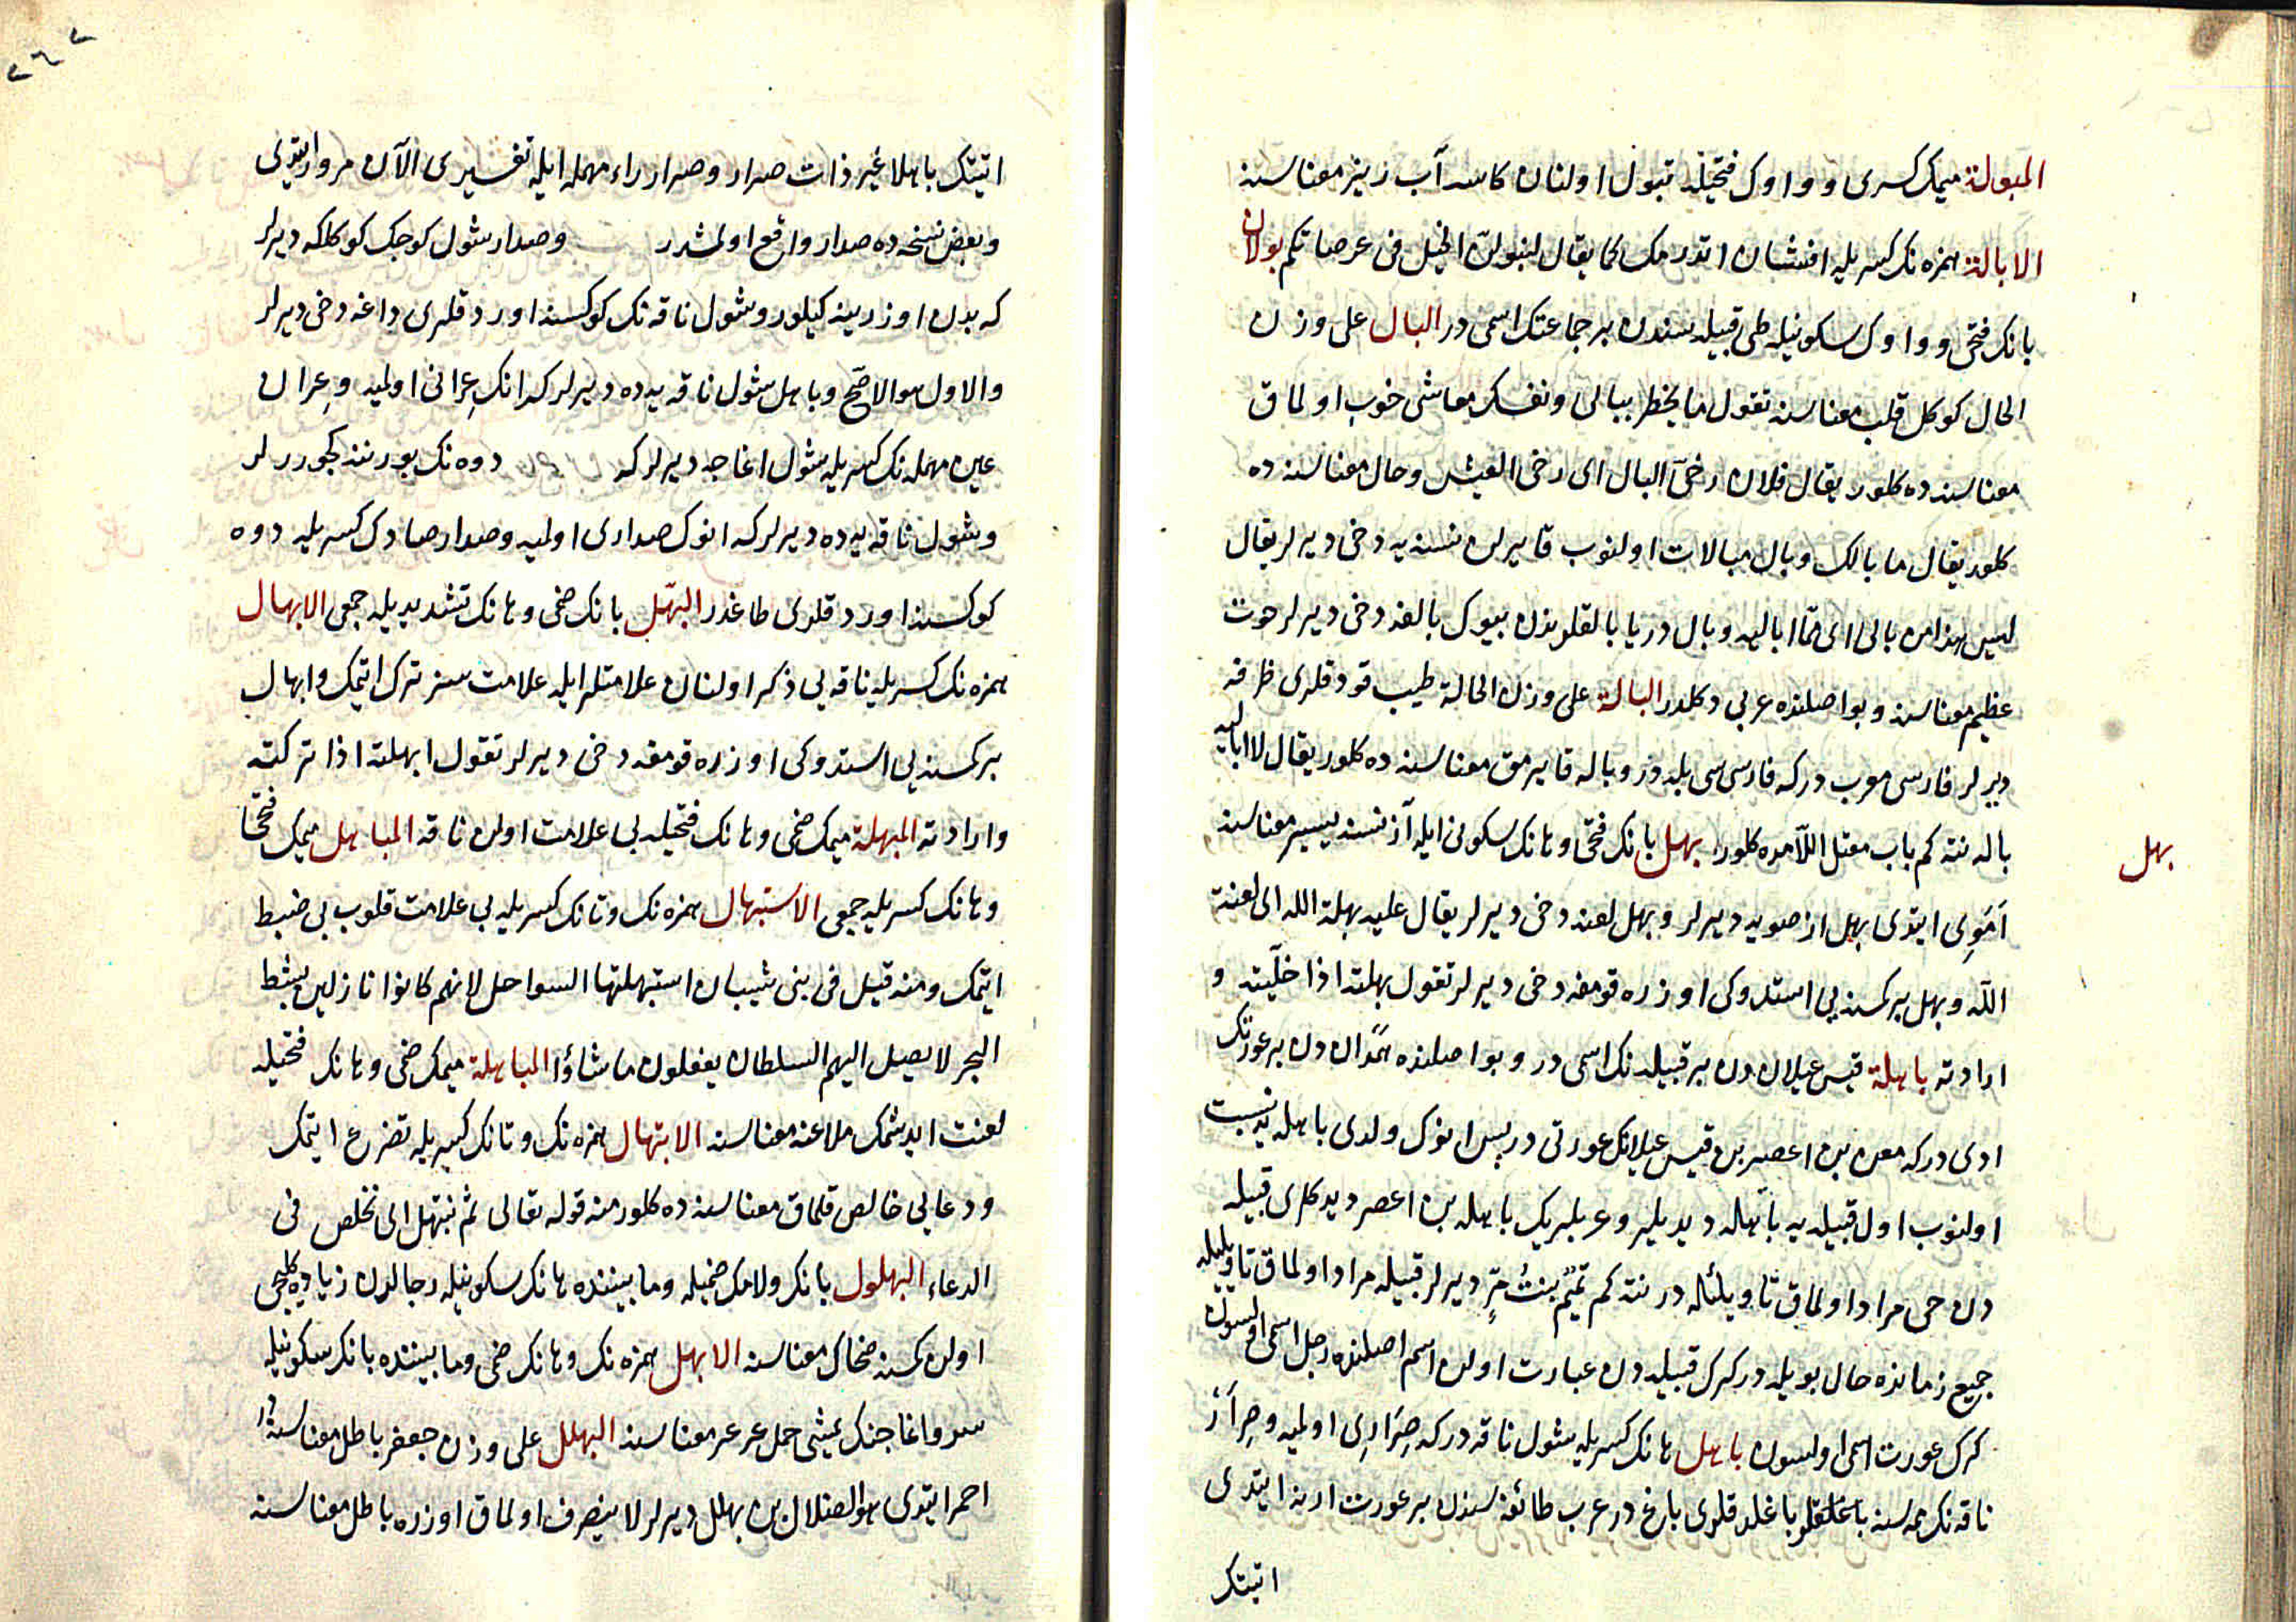 المبولة ميمك كسرى وواوك فتحيله تبول اولنان كاسه آب ريز معناسنه
الابالة همزه نك كسريله افشان اتدرمك كما يقال لنبولنّ الخيل فى عرصاتكم بولان
بانك فتحى وواوك سكونيله طى قبيله سندن بر جماعتك اسمى در البال على وزن
الحال كوكل قلب معناسنه تقول ما يخطر ببالى ونفسك معاشى خوب اولماق
معناسنه ده كلور يقال فلان رخىّ البال اى رخى العيش وحال معناسنه ده
كلور يقال ما بالك وبال مبالات اولنوب قايرلن نسنه يه دخى ديرلر يقال
ليس هذا من بالى اى ممّا اباليه وبال دريا بالقلرندن بيوك بالغه دخى ديرلر حوت
عظيم معناسنه وبو اصلنده عربى دكلدر البالة على وزن الحالة طيب قودقلرى ظرفه
ديرلر فارسى معرب دركه فارسى سى بيله در وباله قايرمق معناسنه ده كلور يقال لا اباليه
بالة نته كم باب معتل اللامده كلور بهل بانك فتحى وهانك سكونى ايله آز نسنه يسير معناسنه
اَمَوِى ايتدى بهل از صويه ديرلر وبهل لعنه دخى ديرلر يقال عليه بهلة الله اى لعنة
اللّه وبهل بر كمسنه يى استدوكى اوزره قومغه دخى ديرلر تقول بهلته اذا خلّيته و
ارادته باهلة قيس عيلان دن بر قبيله نك اسمى در وبو اصلنده همدان دن بر عورتك
ادى دركه معن بن اعصر بن قيس عيلانك عورتى در پس انوك ولدى باهله يه نسبت
اولنوب اول قبيله يه باهله ديديلر وعربلرك باهلة بن اعصر ديدكلرى قبيله
دن حى مراد اولماق تاويلنه در نته كم تميم بنت مرٍّ ديرلر قبيله مراد اولماق تاويليله
جميع زمانده حال بويله در كرك قبيله دن عبارت اولن اسم اصلنده رجل اسمى اولسون
كرك عورت اسمى اولسون باهل هانك كسريله شول ناقه دركه صِرَارِى اولميه وصِرَار
ناقه نك ممه سنه باغلدقلرى باغ در عرب طائفه سندن بر عورت ارينه ايتدى
اتيتك
بهل
٢٦٢
اتيتك باهلا غير ذات صرار وصرار راء مهمله ايله تفسيرى الآن مرور ايتدى
وبعض نسخه ده صدار واقع اولمشدر وصدار شول كوجك كوكلكه ديرلر
كه بدن اوزرينه كيلور وشول ناقه نك كوكسنه اوردقلرى داغه دخى ديرلر
والاول هو الاصح وباهل شول ناقه يه ده ديرلر كه انك عِرانى اولميه وعِران
عين مهمله نك كسريله شول اغاجه ديرلر كه دوه نك بورننه كجوررلر
وشول ناقه يه ده ديرلر كه انوك صدارى اولميه وصدار صادك كسريله دوه
كوكسنه اوردقلرى طاغدر البهّل بانك ضمى وهانك تشديديله جمعى الابهال
همزه نك كسريله ناقه يى ذكر اولنان علامتلر ايله علامت سز ترك اتيمك وابهال
بر كمسنه يى استدوكى اوزره قومغه دخى ديرلر تقول ابهلته اذا تركته
وارادته المبهلة ميمك ضمى وهانك فتحيله بى علامت اولن ناقه المباهل ميمك فتحى
وهانك كسريله جمعى الاستبهال همزه نك وتانك كسريله بى علامت قلوب بى ضبط
ايتمك ومنه قيل فى بنى شيبان استبهلتها السواحل لانهم كانوا نازلين بشط
البحر لا يصل اليهم السلطان يفعلون ما شاؤا المباهلة ميمك ضمى وهانك فتحيله
لعنت ايدشمك ملاعنه معناسنه الابتهال همزه نك وتانك كسريله تضرع ايتمك
ودعايى خالص قلماق معناسنه ده كلور منه قوله تعالى ثم نبتهل اى نخلص فى
الدعاء البهلول بانك ولامك ضميله وما بيننده هانك سكونيله رجالدن زياده كلجى
اولن كمسنه ضحاك معناسنه الابهل همزه نك وهانك ضمى وما بيننده بانك سكونيله
سرو اغاجنك يمشى حمل عرعر معناسنه البهلل على وزن جعفر باطل معناسنه
احمر ايتدى هو الضلال بن بهلل ديرلر لا ينصرف اولماق اوزره باطل معناسنه